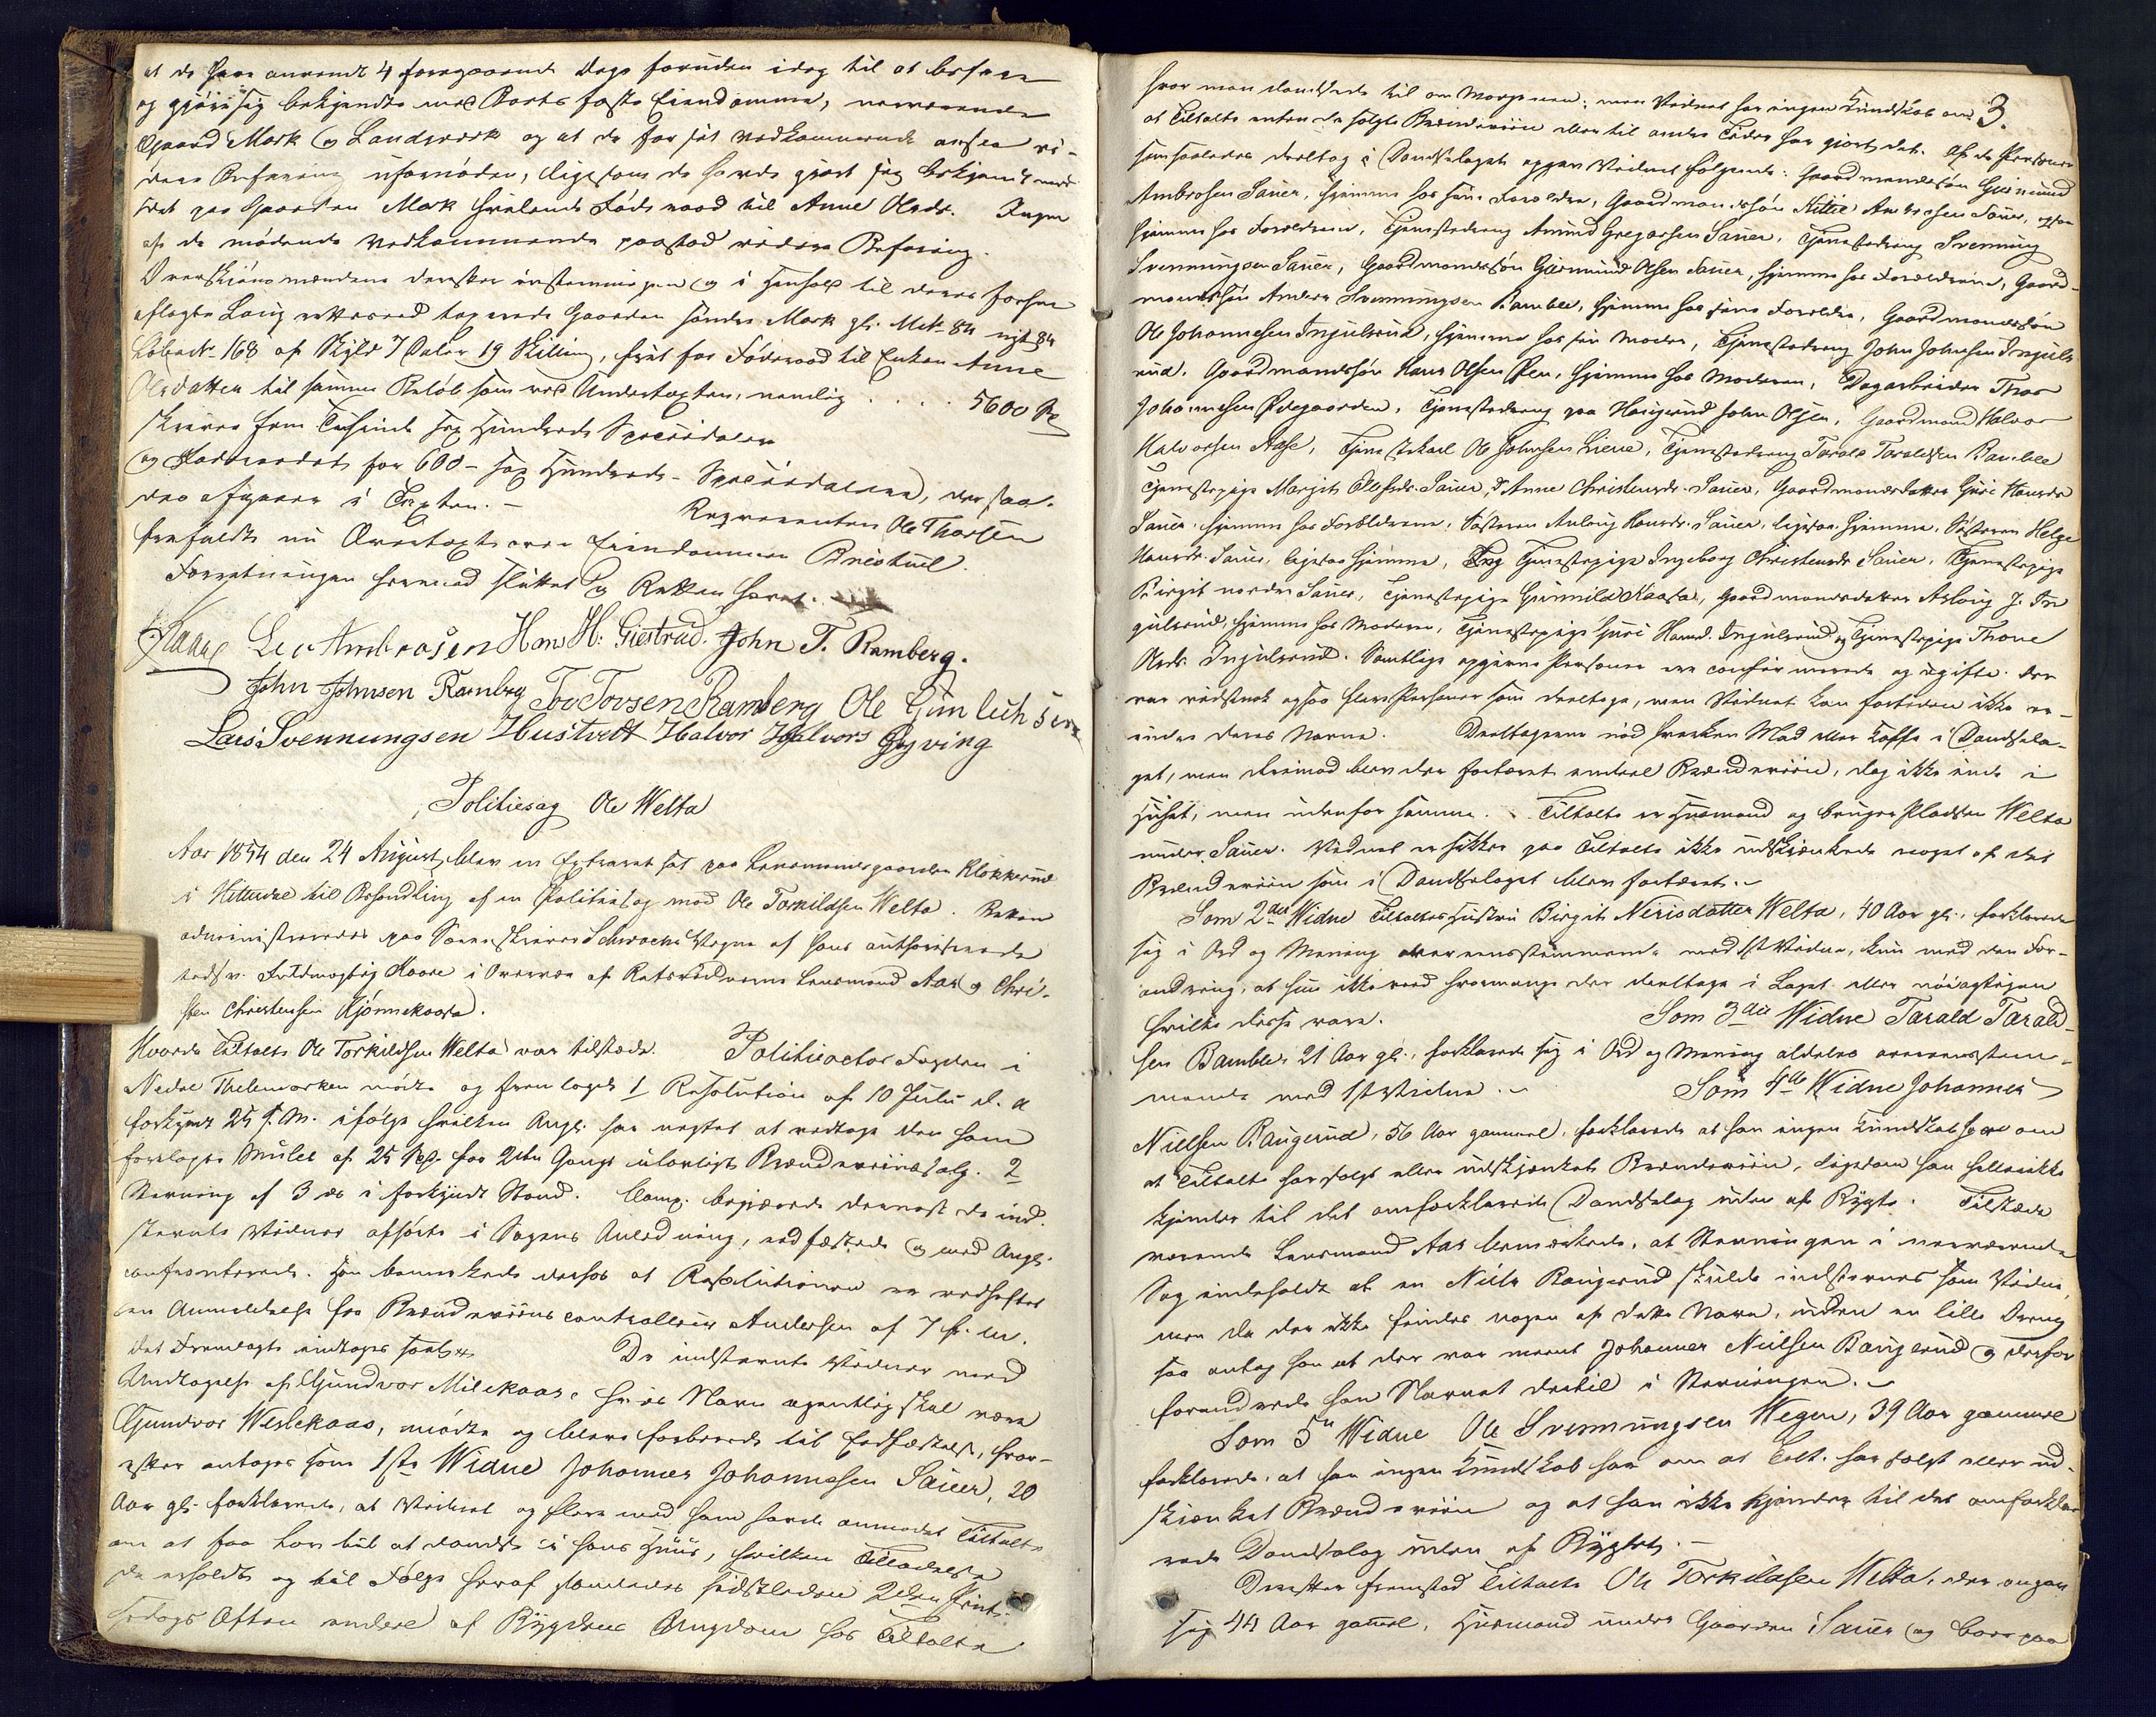 at de have anvendt 4 foregaaende Dage foruden idag til at befare
og gjøre sig bekjendte med Bortes faste Eiendomme, nærværende
Gaard Mark og Landværk og at de for sit vedkommende ansee vi-
dere Befaring ufornøden, ligesom de havde gjort sig bekjendt med
det paa Gaarden Mark hvilende Føderaad til Anne Olsdr. Ingen
af de mødende vedkommende paastod videre Befaring.
Overskjønsmændene derefter enstemmigen og i Henhold til deres forhen
aflagte Laug rettesed taxerede Gaarden søndre Mark gl. Mat. 84 nyt 84
Løbe No 168 af Skyld 7 Daler 19 Skilling, frit for Føderaad til Enken Anne
Olsdatter til samme Beløb som ved Undertaxten, nemlig . . . . 5600 Sp
skriver fem Tusinde sex Hundrede Speciedaler
og Føderaadet for 600 - sex Hundrede - Speciedalere, der saa-
des afgaaer i Taxten. - Repræsenten Ole Thorsen
frafaldt nu Overtaxt over Eiendommen Bréstuel.
Forretningen hermed sluttet og Retten hævet.
Kaas Lev Ambrosen Han H: Giestrud. John T. Ramberg.
John Johnsen Ramberg Tov Tovsen Ramberg Ole Gunleiksen
Lars Svennungsen Hustvedt Halvor Halvors Gryving
Politiesag Ole Welta
Aar 1854 den 24 August, blev en Extraret sat paa Lensmandsgaarden Klokkerud
i Hitterdal til Behandling af en Politiesag mod Ole Torkildsen Welta. Retten
administreredes paa Sorenskriver Schwachs Vegne af hans authoriserede
edsv. Fuldmægtig Kaare i Overvær af Retsvidnerne Lensmand Aas og Chri-
sten Christensen Gjønnekaasa.
Hvorda Tiltalte Ole Torkildsen Welta var tilstæde. Politieactor Fogden i
Nedre Thelemarken mødte og fremlagde 1 Resolution af 10 Juli d. A
forkyndt 25 s. M. ifølge hvilken Angl. har negtet at vedtage den ham
forelagte Mulct af 25 Spd. for 2den Gangs ulovligt Brændeviinssalg. 2
Stevning af 3 ds i forkyndt Stand. Comp. begjærede dernæst de ind-
stevnte Vidner afhørte i Sagens Anledning, edfæstede og med Angl.
confronterede. Han bemærkede derhos at Resolutionen er vedheftet
en Anmeldelse fra Brændeviinscontrolleur Andersen af 7 f. M.
Det Fremlagte indtages saal. De indstevnte Vidner med
Undtagelse af Gundvor Milekaas, hvis Navn egentlig skal være
Gundvor Weslekaas, mødte og bleve forberedt til Edfæstelse, hvor-
efter antages som 1ste Widne Johannes Johannesen Sauer, 20
Aar gl. forklarede, at Vidnet og flere med ham havde anmodet Tiltalte
om at faa Lov til at dandse i hans Huus, hvilken Tilladelse
de erholdt og til Følge heraf samledes sidstleden 2den Pints-
edags Aften endeel af Bygdens Ungdom hos Tiltalte
3.
hvor man dandsede til om Morgenen; men Vidnet har ingen Kundskab om
at Tiltalte enten da solgte Brændeviin eller til andre Tider har gjort det. Af de Personer
som saaledes deeltog i Dandselaget opgav Vidnet følgende: Gaardmandssøn Guinund
Ambrosen Sauer, hjemme hos sine Forældre, Gaardmandssøn Kittil Ambrosen Sauer, ogsaa
hjemme hos Forældrene, Tjenestedreng Amund Gregarsen Sauer, Tjenestedreng Svenning
Svenningsen Sauer, Gaardmandssøn Guinmund Olsen Sauer, hjemme hos Forældrene, Gaard-
mandssøn Anders Svenningsen Bamble, hjemme hos sine Forældre, Gaardmandssøn
Ole Johannesen Ingulsrud, hjemme hos sin Moder, Tjenestedreng John Johnsen Inguls-
rud. Gaardmandssøn Hans Olsen Øen, hjemme hos Moderen, Dagarbeider Thor
Johannesen Ødegaarden, Tjenestedreng paa Haugerud John Olsen, Gaardmand Halvor
Halvorsen Aase, Tjenestekarl Ole Johnsen Liene, Tjenestedreng Tarald Taraldsen Bamble
Tjenestepige Margit Olsdr. Sauer, Do Anne Christensdr. Sauer, Gaardmandsdatter Guri Hansdr
Sauer, hjemme hos Forældrene, Søsteren Aslaug Hansdr. Sauer, ligesaa hjemme, Søsteren Helge
Hansdr. Sauer, ligesaa hjemme, Tjenestepige Ingeborg Christensdr Sauer, Tjenestepige
Birgit nordre Sauer, Tjenestepige Gunnild Kaasa, Gaardmandsdatter Aslaug J. In-
gulsrud, hjemme hos Moderen, Tjenestepige Guri Hansd. Ingulsrud og Tjenestepige Thone
Olsdr. Ingulsrud. Samtlige opgivne Personer ere confirmerede og ugifte. Der
var vistnok ogsaa flere Personer som deeltoge, men Vidnet kan fortiden ikke er-
indre deres Navne. Deeltagerne nød hverken Mad eller Kaffe i Dandsela-
get, men derimod blev der fortæret endeel Brændeviin, dog ikke inde i
Huset, men udenfor samme. Tiltalte er Huusmand og bruger Pladsen Welta
under Sauer. Vidnet er sikker paa Tiltalte ikke udskjænkede noget af det
Brændeviin som i Dandselaget blev fortæret. -
Som 2det Widne Tiltaltes Hustru Birgit Nerisdatter Welta, 40 Aar gl., forklarede
sig i Ord og Mening overeensstemmende med 1st Vidne, kun med den For-
andring, at hun ikke veed hvormange der deeltoge i Laget eller nøiagtigen
hvilke disse vare. Som 3die Widne Tarald Tarald-
sen Bamble, 21 Aar gl., forklarede sig i Ord og Mening aldeles overeensstem-
mende med 1st Vidne. - Som 4de Widne Johannes
Nielsen Baugerud, 56 Aar gammel, forklarede at han ingen Kundskab har om
at Tiltalte har solgt eller udskjænket Brændeviin, ligesom han hellerikke
kjender til det omforklarede Dandselag uden af Rygte. Tilstæde
værende Lensmand Aas bemærkede, at Stevningen i nærværende
Sag indeholdt at en Niels Baugerud skulde indstevnes som Vidne,
men da der ikke findes nogen af dette Navn, uden en lille Dreng
saa antog han at der var meent Johannes Nielsen Baugerud og derfor
forandrede han Navnet dertil i Stevningen. -
Som 5te Widne Ole Svennungsen Wegen, 39 Aar gammel
forklarede, at han ingen Kundskab har om at Tilt. har solgt eller ud-
skjænket Brændeviin og at han ikke kjender til det omforkla-
rede Dandselag uden af Rygtet. -
Derefter fremstod Tiltalte Ole Torkildsen Welta, der angav
sig 44 Aar gamel, Huusmand under Gaarden Sauer og boer paa